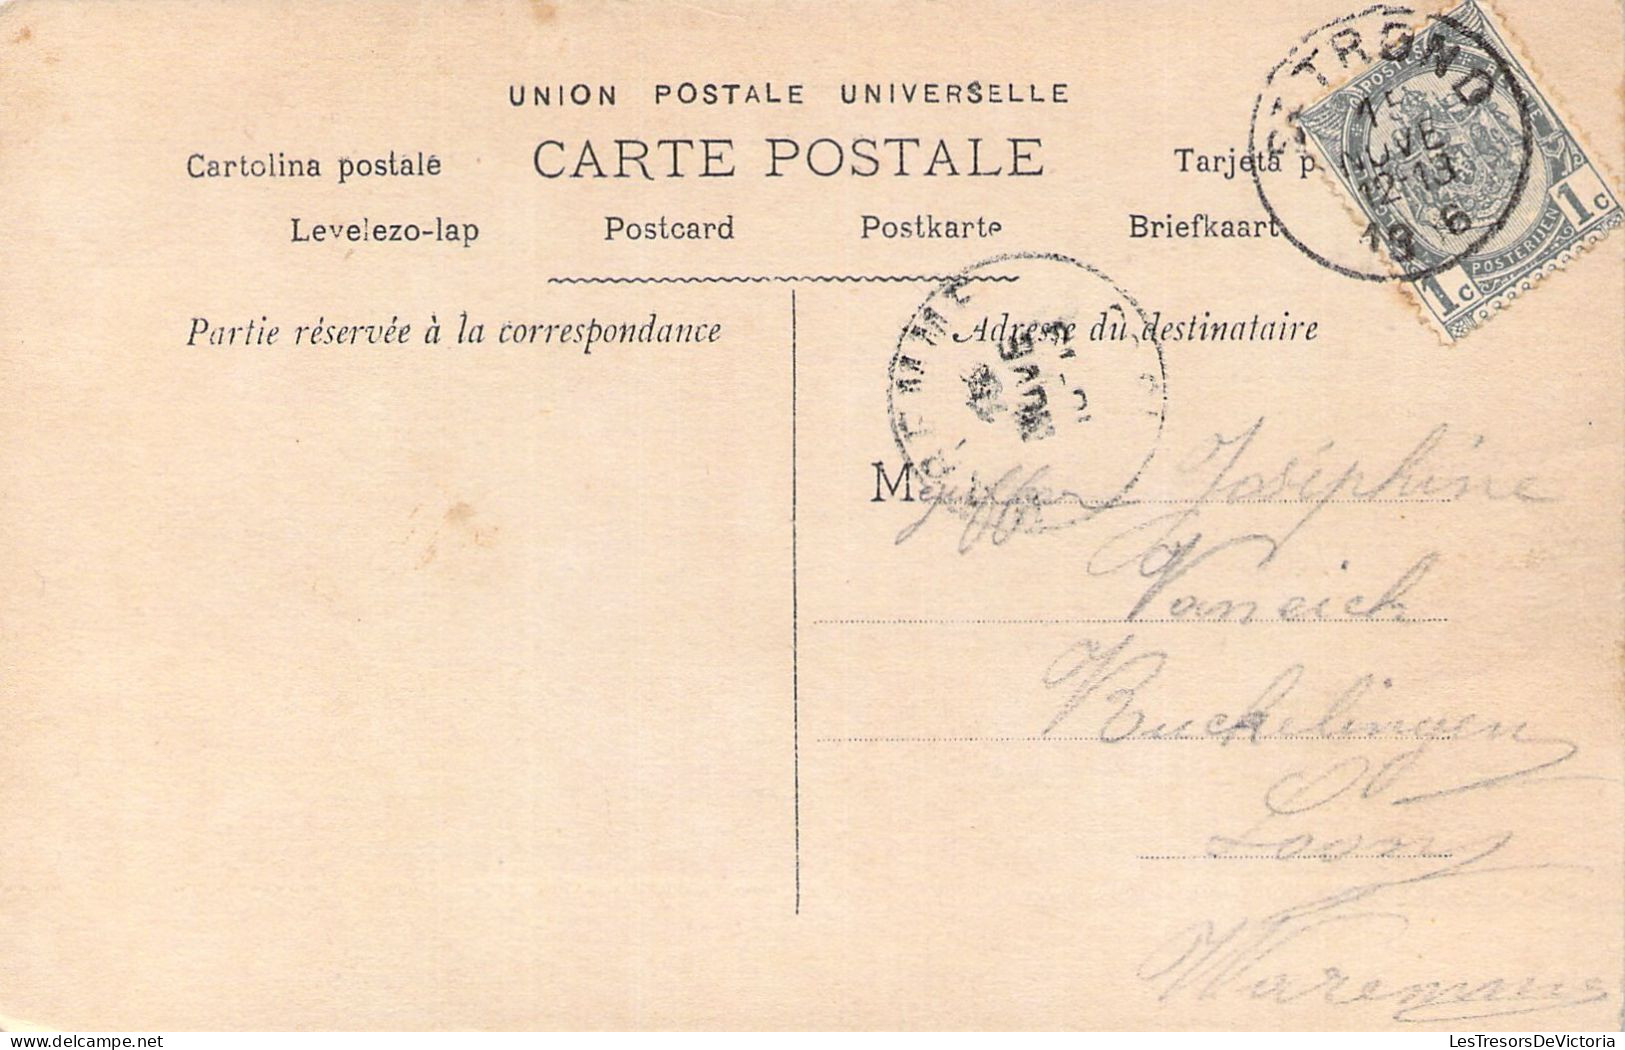 UNION POSTALE UNIVERSELLE
CARTE POSTALE
Cartolina postale
Tarjeta p
Levelezo-lap Postcard Postkarte Briefkaart
Partie réservée à la correspondance
Adresse du destinataire
ST TROND
15
NOVE
12-13
19 6
POSTES
POSTERIJEN
1c
1c
NOVE
M Joséphine
Vaneich
Ruckelingen
Loon
Waremme
LesTresorsDeVictoria